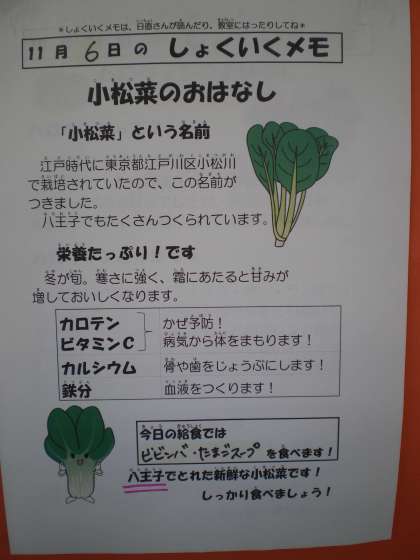 ＊しょくいくメモは、日直さんが読んだり、教室にはったりしてね＊
11月6日のしょくいくメモ
小松菜のおはなし
「小松菜」という名前
江戸時代に東京都江戸川区小松川
で栽培されていたので、この名前が
つきました。
八王子でもたくさんつくられています。
栄養たっぷり！です
冬が旬。寒さに強く、霜にあたると甘みが
増しておいしくなります。
カロテン かぜ予防！
ビタミンC 病気から体をまもります！
カルシウム 骨や歯をじょうぶにします！
鉄分 血液をつくります！
今日の給食では
ビビンバ・たまごスープ を食べます！
八王子でとれた新鮮な小松菜です！
しっかり食べましょう！